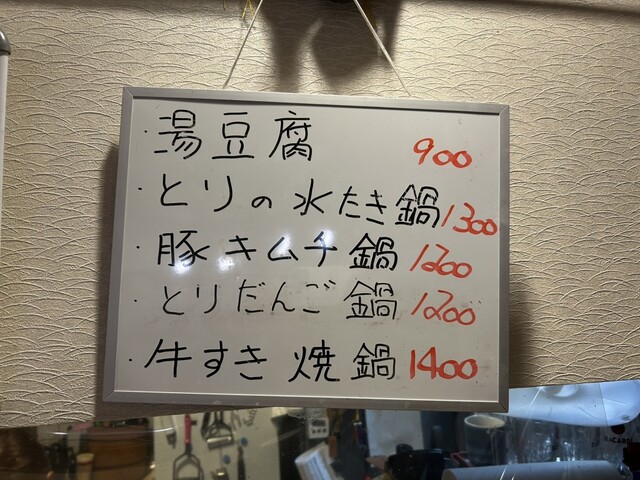 ・湯豆腐 900
・とりの水たき鍋 1300
・豚キムチ鍋 1200
・とりだんご鍋 1200
・牛すき焼鍋 1400